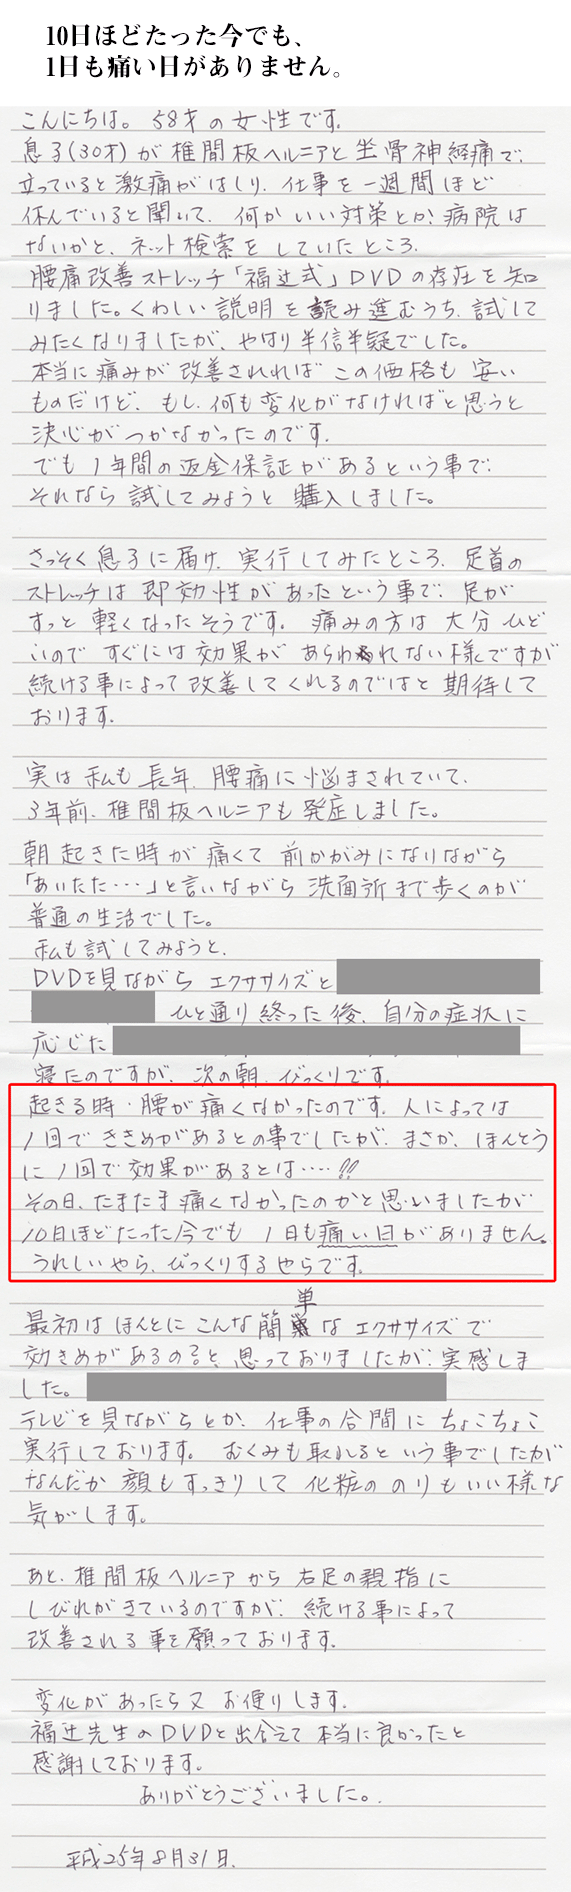 10日ほどたった今でも、
1日も痛い日がありません。
こんにちは。 58才の女性です。
息子(30才)が椎間板ヘルニアと坐骨神経痛で、
立っていると激痛がはしり、仕事を一週間ほど
休んでいると聞いて、何かいい対策とか、病院は
ないかと、ネット検索をしていたところ、
腰痛改善ストレッチ「福辻式」DVDの存在を知
りました。くわしい説明を読み進むうち、試して
みたくなりましたが、やはり半信半疑でした。
本当に痛みが改善されれば この価格も 安い
ものだけど、もし、何も変化がなければと思うと
決心がつかなかったのです。
でも 1年間の返金保証があるという事で、
それなら 試してみようと 購入しました。
さっそく息子に届け、実行してみたところ、足首の
ストレッチは 即効性があったという事で、足が
すっと 軽くなったそうです。 痛みの方は 大分 ひど
いので すぐには効果が あらわれない様ですが
続ける事によって改善してくれるのではと期待して
おります。
実は 私も 長年、腰痛に悩まされていて、
3年前、椎間板ヘルニアも発症しました。
朝起きた時が痛くて 前かがみになりながら
「あいたた・・・」と言いながら 洗面所まで歩くのが
普通の生活でした。
私も試してみようと、
DVDを見ながら エクササイズと
ひと通り終った後、自分の症状に
応じた
寝たのですが、次の朝、びっくりです。
起きる時、腰が痛くなかったのです。人によっては
1回でききめがあるとの事でしたが、まさか、ほんとう
に1回で効果があるとは・・・・!!
その日、たまたま痛くなかったのかと思いましたが
10日ほどたった今でも 1日も痛い日がありません。
うれしいやら、びっくりするやらです。
最初は ほんとに こんな簡単な エクササイズで
効きめがあるのと、思っておりましたが、実感しま
した。
テレビを見ながらとか、仕事の合間に ちょこちょこ
実行しております。 むくみも取れるという事でしたが
なんだか 顔もすっきりして 化粧ののりもいい様な
気がします。
あと、椎間板ヘルニアから 右足の親指に
しびれがきているのですが、続ける事によって
改善される事を願っております。
変化があったら又 お便りします。
福辻先生のDVDと出合えて 本当に良かったと
感謝しております。
ありがとうございました。
平成25年8月31日.